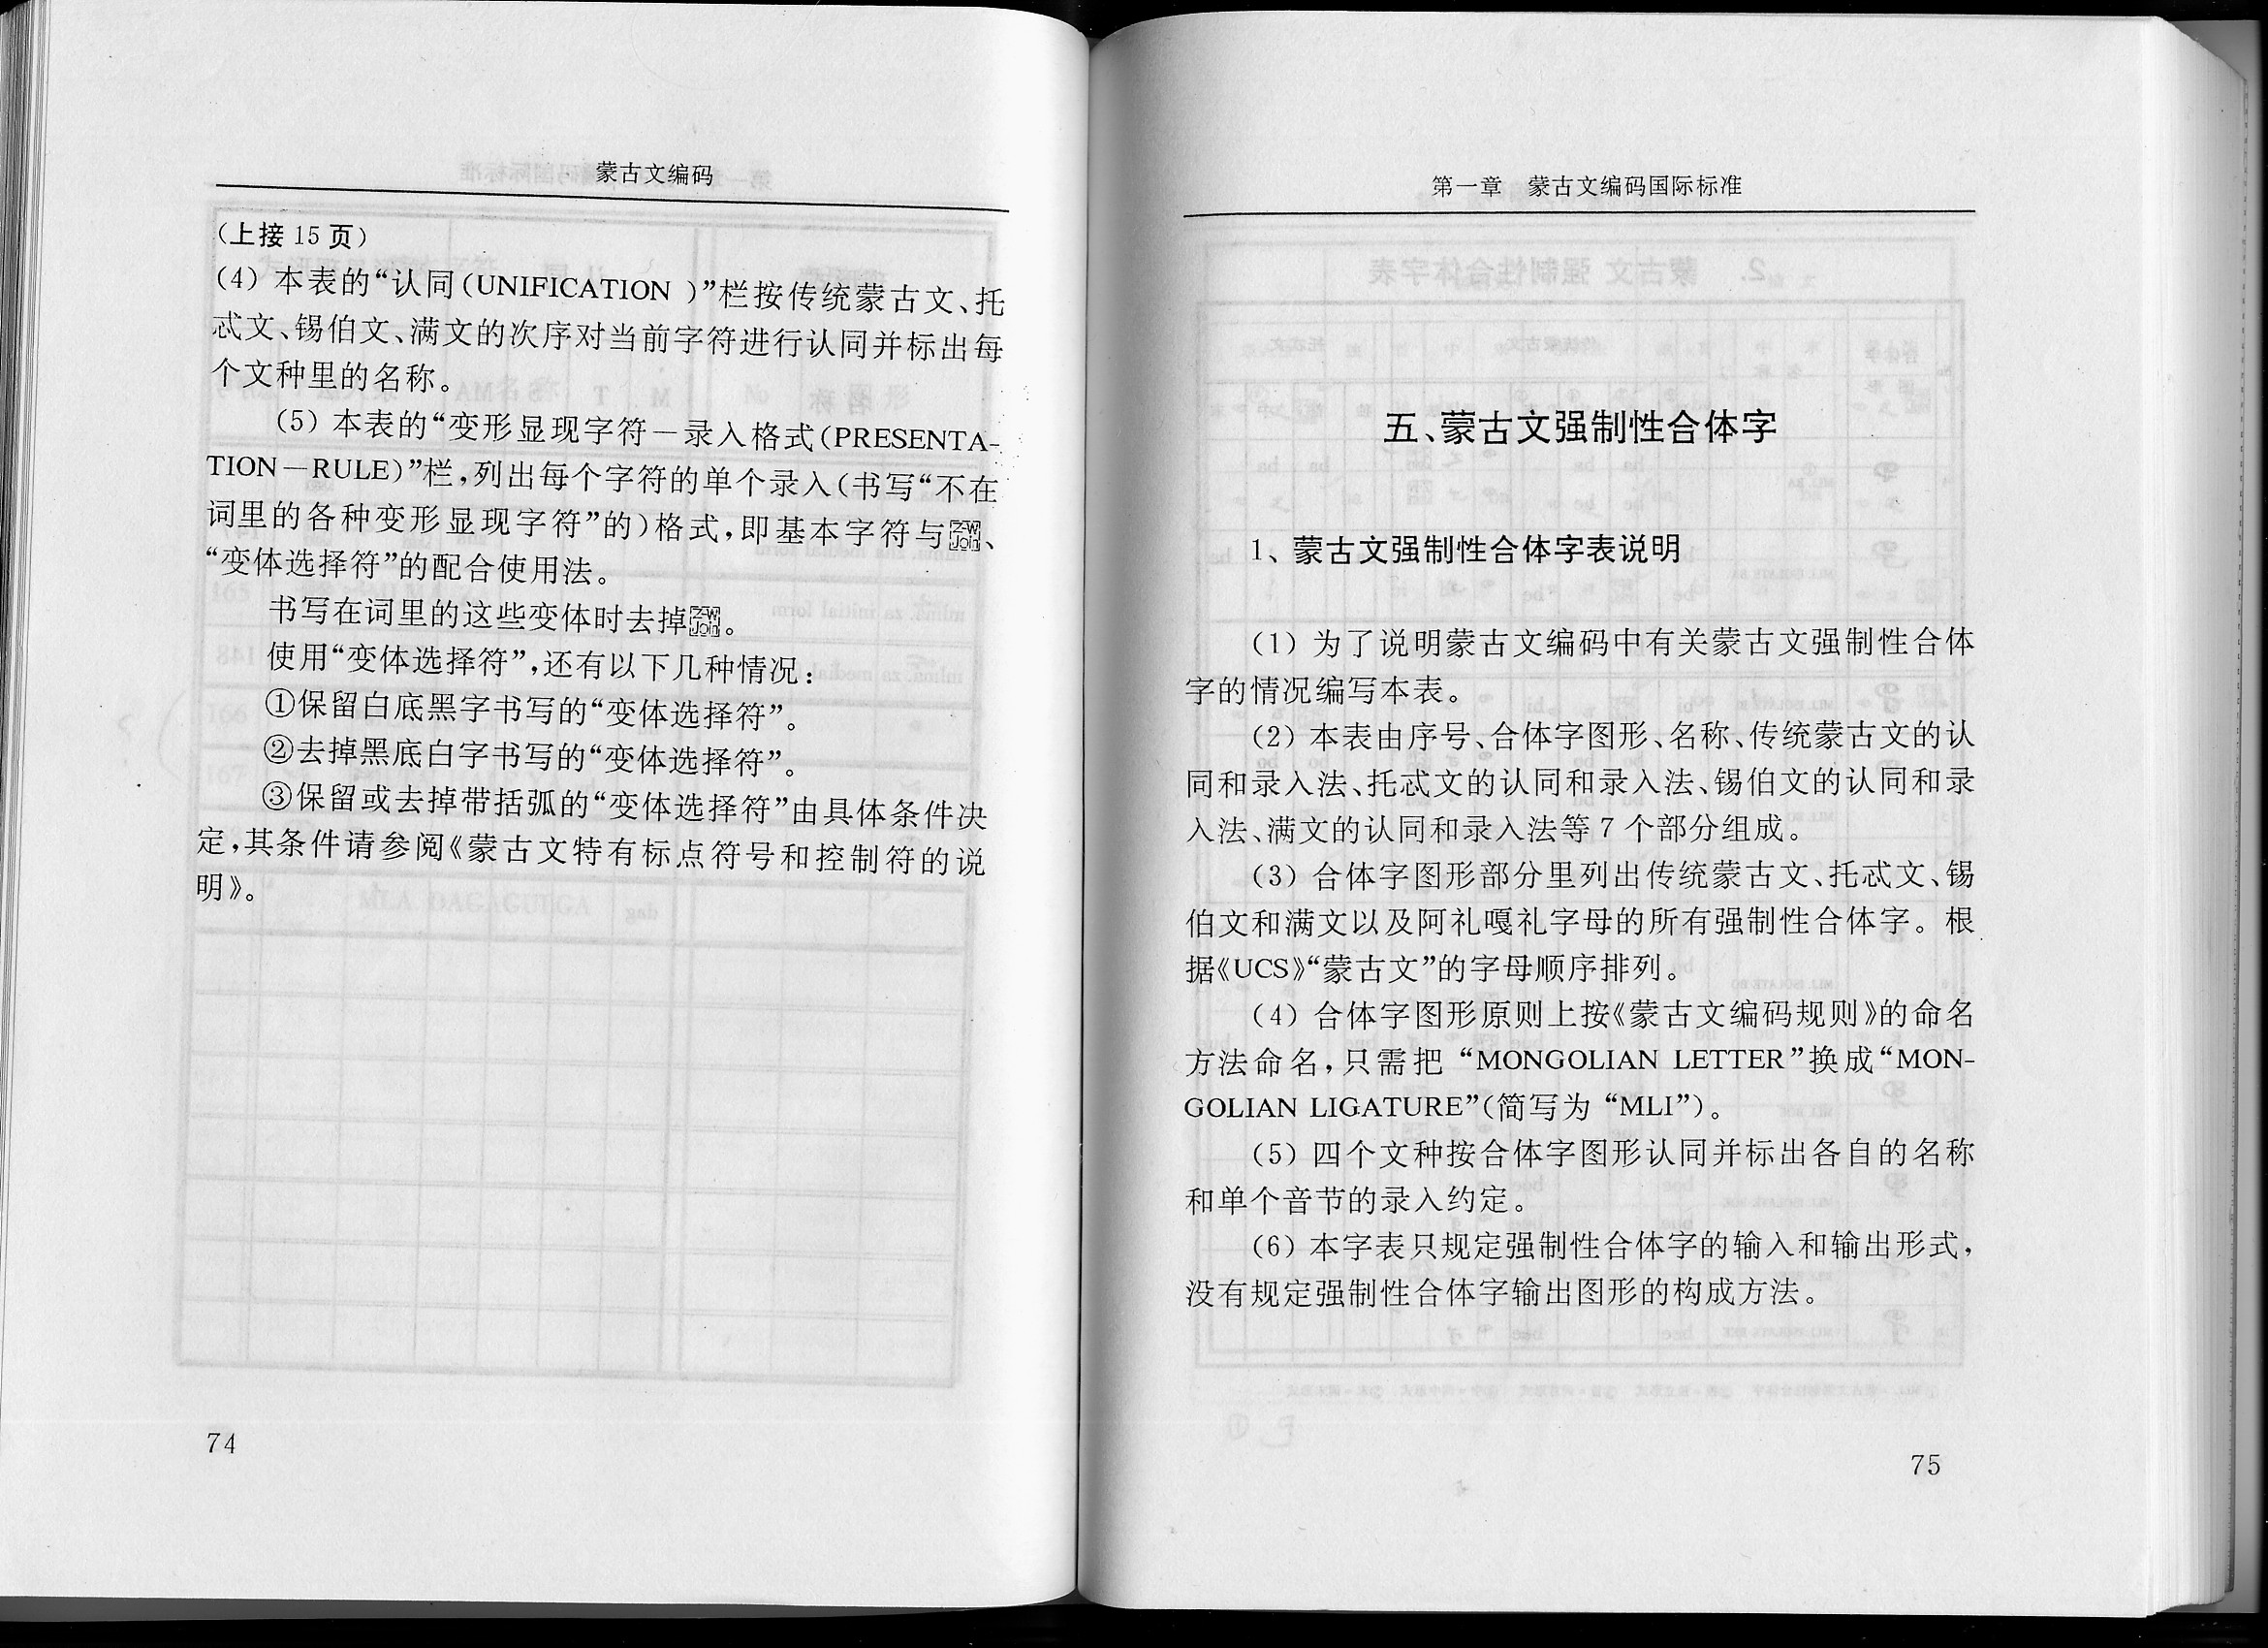 蒙古文编码
（上接 15 页）
(4) 本表的“认同(UNIFICATION )”栏按传统蒙古文、托
忒文、锡伯文、满文的次序对当前字符进行认同并标出每
个文种里的名称。
(5) 本表的“变形显现字符－录入格式(PRESENTA-
TION－RULE)”栏,列出每个字符的单个录入(书写“不在
词里的各种变形显现字符”的)格式,即基本字符与ZWJoin、
“变体选择符”的配合使用法。
书写在词里的这些变体时去掉ZWJoin。
使用“变体选择符”,还有以下几种情况:
①保留白底黑字书写的“变体选择符”。
②去掉黑底白字书写的“变体选择符”。
③保留或去掉带括弧的“变体选择符”由具体条件决
定,其条件请参阅《蒙古文特有标点符号和控制符的说
明》。
74
第一章　蒙古文编码国际标准
五、蒙古文强制性合体字
1、蒙古文强制性合体字表说明
(1) 为了说明蒙古文编码中有关蒙古文强制性合体
字的情况编写本表。
(2) 本表由序号、合体字图形、名称、传统蒙古文的认
同和录入法、托忒文的认同和录入法、锡伯文的认同和录
入法、满文的认同和录入法等 7 个部分组成。
(3) 合体字图形部分里列出传统蒙古文、托忒文、锡
伯文和满文以及阿礼嘎礼字母的所有强制性合体字。根
据《UCS》“蒙古文”的字母顺序排列。
(4) 合体字图形原则上按《蒙古文编码规则》的命名
方法命名,只需把 “MONGOLIAN LETTER”换成“MON-
GOLIAN LIGATURE”(简写为 “MLI”)。
(5) 四个文种按合体字图形认同并标出各自的名称
和单个音节的录入约定。
(6) 本字表只规定强制性合体字的输入和输出形式,
没有规定强制性合体字输出图形的构成方法。
75